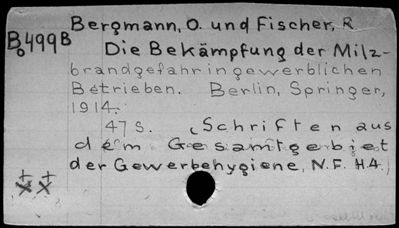 Bergmann, O. und Fischer, R
B499B
o
Die Bekämpfung der Milz-
brandgefahr in gewerblichen
Betrieben. Berlin, Springer,
1914.
47 S. (Schriften aus
dem Gesamtgebiet
der Gewerbehygiene, N.F. H4.)